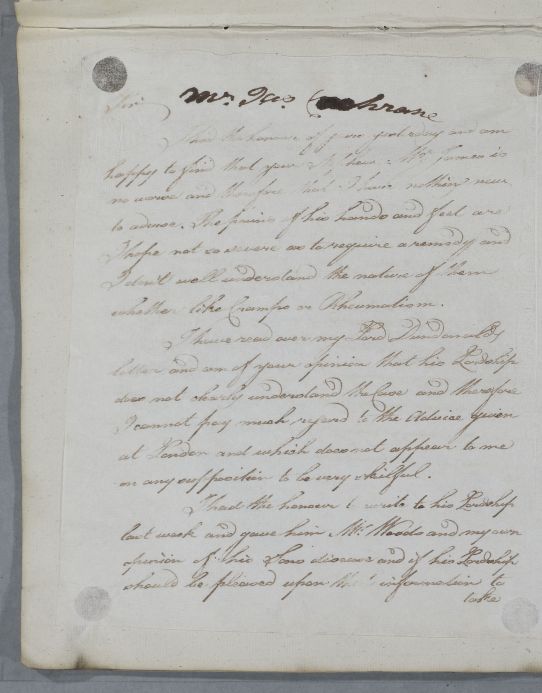 Mr. Jas. Cochrane
Sir
I had the honour of your yesterday and am
happy to find that your Nephew Mr. James is
no worse and therefore that I have nothin new
to advise. The pains of his hands and feet are
I hope not so severe as to require a remedy and
I don't well understand the nature of them
whether like Cramps or Rheumatism.
I have read over my Lord Dundonalds
letter and am of your opinion that his Lordship
does not clearly understand the Case and therefore
I cannot pay much regard to the advice given
at London and which does not appear to me
on any supposition to be very skilful.
I had the honour to write to his Lordship
last week and gave him Mr. Woods and my own
opinion of his Sons disease and if his Lordship
should be pleased upon that information to
take